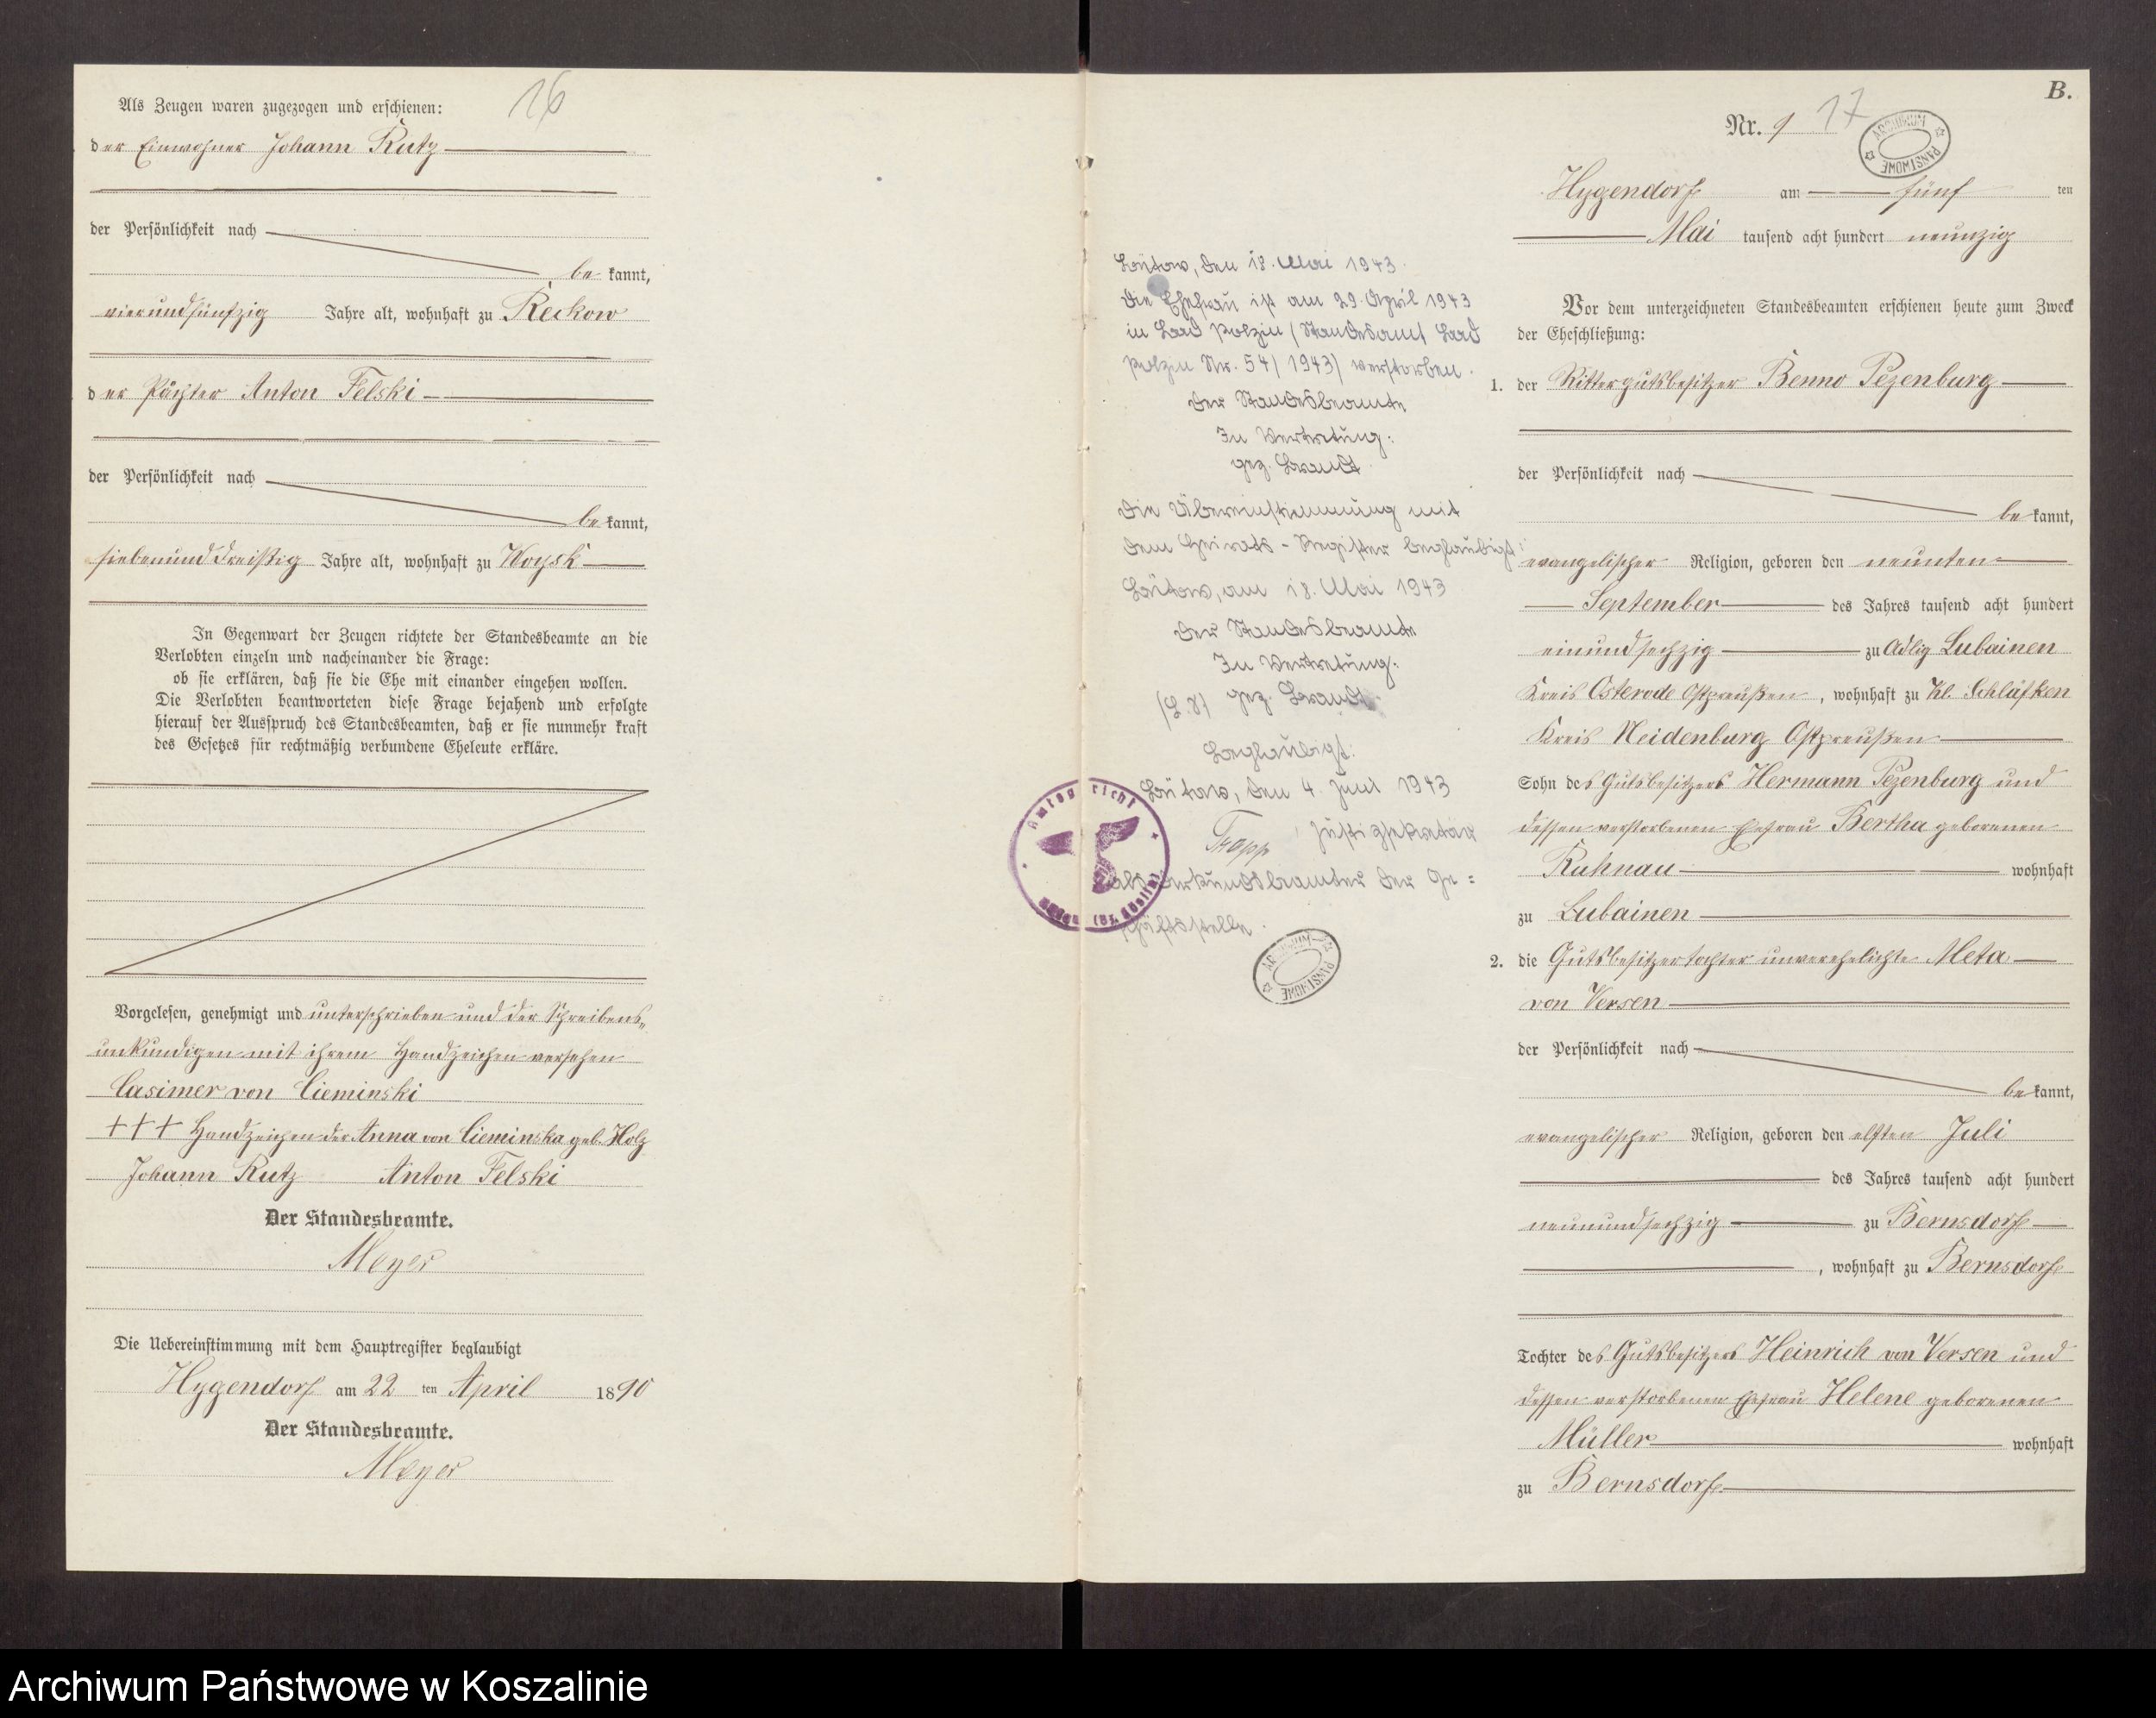 Als Zeugen waren zugezogen und erschienen:
16
der Einwohner Johann Rutz
der Persönlichkeit nach
be kannt,
vierundfünfzig Jahre alt, wohnhaft zu Reckow
der Pächter Anton Felski
der Persönlichkeit nach
be kannt,
siebenunddreißig Jahre alt, wohnhaft zu Woysk
In Gegenwart der Zeugen richtete der Standesbeamte an die
Verlobten einzeln und nacheinander die Frage:
ob sie erklären, daß sie die Ehe mit einander eingehen wollen.
Die Verlobten beantworteten diese Frage bejahend und erfolgte
hierauf der Ausspruch des Standesbeamten, daß er sie nunmehr kraft
des Gesetzes für rechtmäßig verbundene Eheleute erkläre.
Vorgelesen, genehmigt und unterschrieben und der Schreibens„
unkundigen mit ihrem Handzeichen versehen
Casimer von Cieminski
+++ Handzeichen der Anna von Cieminska geb. Holz
Johann Rutz Anton Felski
Der Standesbeamte.
Meyer
Die Uebereinstimmung mit dem Hauptregister beglaubigt
Hygendorf am 22 ten April 1890
Der Standesbeamte.
Meyer
Bütow, den 18. Mai 1943.
Die Ehefrau ist am 29. April 1943
in Bad Polzin (Standesamt Bad
Polzin Nr. 54/1943) verstorben.
Der Standesbeamte
In Vertretung:
gez. Brandt
Die Übereinstimmung mit
dem Heirats-Register beglaubigt:
Bütow, am 18. Mai 1943
Der Standesbeamte
In Vertretung:
(L.S) gez. Brandt.
Beglaubigt:
Bütow, den 4. Juni 1943
Trapp, Justizsekretär
als Urkundsbeamter der Ge=
schäftsstelle.
Amtsgericht
Bütow (Bz. Köslin)
ARCHIWUM PAŃSTWOWE
B.
Nr. 9 17
ARCHIWUM PAŃSTWOWE
Hygendorf am fünf ten
Mai tausend acht hundert neunzig
Vor dem unterzeichneten Standesbeamten erschienen heute zum Zweck
der Eheschließung:
1. der Rittergutsbesitzer Benno Pezenburg
der Persönlichkeit nach
be kannt,
evangelischer Religion, geboren den neunten
September des Jahres tausend acht hundert
einundsechzig zu Adlig Lubainen
Kreis Osterode Ostpreußen, wohnhaft zu Kl. Schläfken
Kreis Neidenburg Ostpreußen
Sohn des Gutsbesitzers Hermann Pezenburg und
dessen verstorbenen Ehefrau Bertha geborenen
Kuhnau wohnhaft
zu Lubainen
2. die Gutsbesitzertochter unverehelichte Meta
von Versen
der Persönlichkeit nach
be kannt,
evangelischer Religion, geboren den elften Juli
des Jahres tausend acht hundert
neunundsechzig zu Bernsdorf
, wohnhaft zu Bernsdorf
Tochter des Gutsbesitzers Heinrich von Versen und
dessen verstorbenen Ehefrau Helene geborenen
Müller wohnhaft
zu Bernsdorf
Archiwum Państwowe w Koszalinie